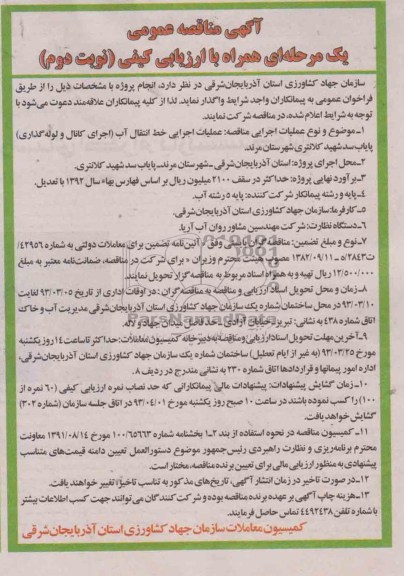 آگهی مناقصه عمومی
یک مرحله‌ای همراه با ارزیابی کیفی (نوبت دوم)
سازمان جهاد کشاورزی استان آذربایجان‌شرقی در نظر دارد، انجام پروژه با مشخصات ذیل را از طریق
فراخوان عمومی به پیمانکاران واجد شرایط واگذار نماید. لذا از کلیه پیمانکاران علاقه‌مند دعوت می‌شود با
توجه به شرایط اعلام شده، در مناقصه شرکت نمایند.
۱-موضوع و نوع عملیات اجرایی مناقصه: عملیات اجرایی خط انتقال آب (اجرای کانال و لوله‌گذاری)
پایاب سد شهید کلانتری شهرستان مرند.
۲-محل اجرای پروژه: استان آذربایجان‌شرقی-شهرستان مرند-پایاب سد شهید کلانتری.
۳-برآورد نهایی پروژه: حداکثر در سقف ۲۱۰۰ میلیون ریال بر اساس فهارس بهاء سال ۱۳۹۲ با تعدیل.
۴-پایه و رشته پیمانکار شرکت کننده: پایه ۵ رشته آب.
۵-کارفرما: سازمان جهاد کشاورزی استان آذربایجان‌شرقی.
۶-دستگاه نظارت: شرکت مهندسین مشاور روان آب آریا.
۷-نوع و مبلغ تضمین: مناقصه‌گر باید طبق وفق « آیین نامه تضمین برای معاملات دولتی به شماره ۴۲۹۵۶/
ت۲۸۴۹۳ه مورخ ۱۳۸۲/۰۹/۱۱ مصوب هیئت محترم وزیران » برای شرکت در مناقصه، ضمانت‌نامه معتبر به مبلغ
۱۲/۵۰۰/۰۰۰ ریال تهیه و به همراه اسناد مربوط به مناقصه گزار تحویل نمایند.
۸-زمان و محل تحویل اسناد ارزیابی و مناقصه به مناقصه گران : در اوقات اداری از تاریخ ۹۳/۰۳/۰۵ لغایت
۹۳/۰۳/۱۰ در محل ساختمان شماره یک سازمان جهاد کشاورزی استان آذربایجان‌شرقی مدیریت آب و خاک
اتاق شماره ۴۳۸ به نشانی: تبریز-خیابان آزادی-حد فاصل میدان جهاد و لاله.
۹-آخرین مهلت تحویل اسناد ارزیابی و مناقصه به دبیرخانه کمیسیون معاملات: حداکثر تا ساعت ۱۴ روز یکشنبه
مورخ ۹۳/۰۳/۲۵ (به غیر از ایام تعطیل) ساختمان شماره یک سازمان جهاد کشاورزی استان آذربایجان‌شرقی،
اداره امور پیمانها و قراردادها اتاق شماره ۲۳۰ به نشانی مندرج در ردیف ۸.
۱۰-زمان گشایش پیشنهادات: پیشنهادات مالی پیمانکارانی که حد نصاب نمره ارزیابی کیفی (۶۰ نمره از
۱۰۰) را کسب نموده باشند در ساعت ۱۰ صبح روز یکشنبه مورخ ۹۳/۰۴/۰۱ در اتاق جلسه سازمان (شماره ۳۰۲)
گشایش خواهد یافت.
۱۱- کمیسیون مناقصه در نحوه استفاده از بند ۲-۱ بخشنامه شماره ۱۰۰/۶۵۶۶۳ مورخ ۱۳۹۱/۰۸/۱۴ معاونت
محترم برنامه‌ریزی و نظارت راهبردی رئیس‌جمهور موضوع دستورالعمل تعیین دامنه قیمت‌های متناسب
پیشنهادی به منظور ارزیابی مالی برای تعیین برنده مناقصه، مختار است.
۱۲-در صورت تاخیر در زمان انتشار آگهی، تاریخ‌های مذکور به تناسب تاخیر تغییر خواهند یافت.
۱۳-هزینه چاپ آگهی بر عهده برنده مناقصه بوده و شرکت کنندگان می‌توانند جهت کسب اطلاعات بیشتر
با شماره تلفن ۴۴۹۲۴۳۸ تماس حاصل فرمایند.
کمیسیون معاملات سازمان جهاد کشاورزی استان آذربایجان شرقی